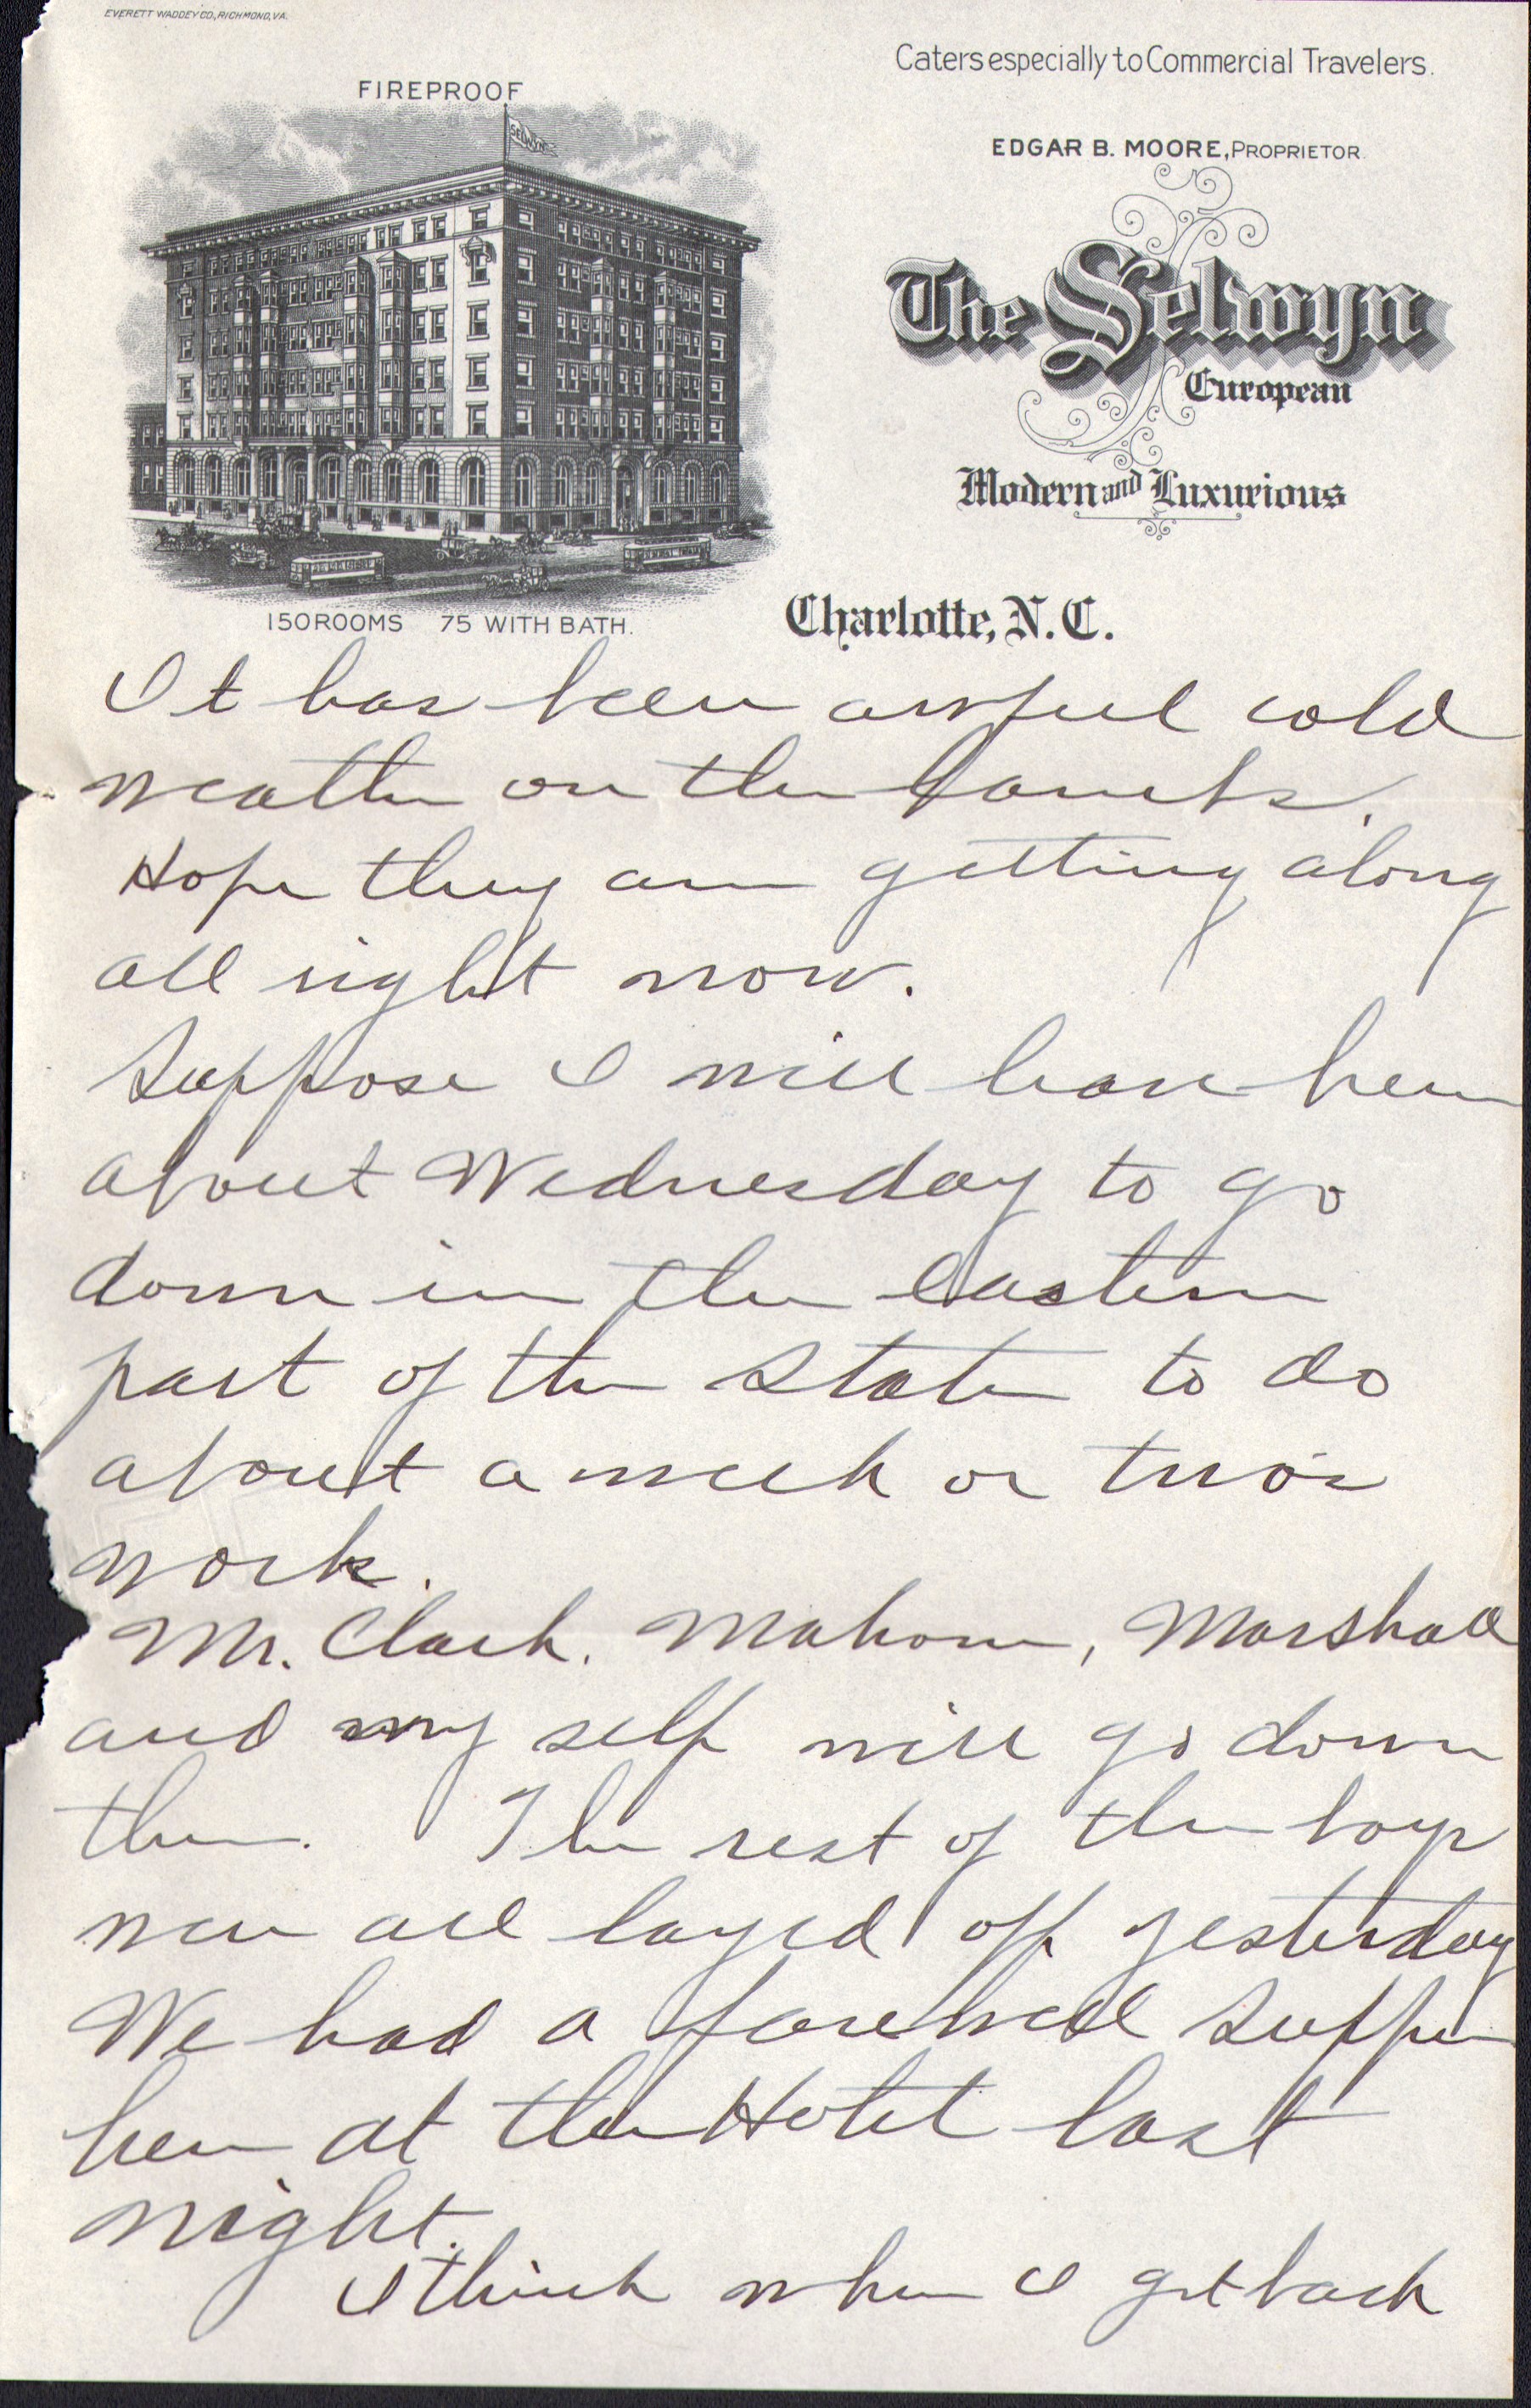 EVERETT WADDEY CO., RICHMOND, VA.
Caters especially to Commercial Travelers.
FIREPROOF
EDGAR B. MOORE, PROPRIETOR
SELWYN
The Selwyn
European
Modern and Luxurious
150 ROOMS 75 WITH BATH.
Charlotte, N. C.
It has been awful cold
weather on the lambs.
Hope they are getting along
all right now.
Suppose I will leave here
about Wednesday to go
down in the eastern
part of the State to do
about a week or two's
work.
Mr. Clark. Mahone, Marshall
and my self will go down
there. The rest of the boys
were all layed off yesterday
We had a farewell supper
here at the Hotel last
night.
I think when I get back